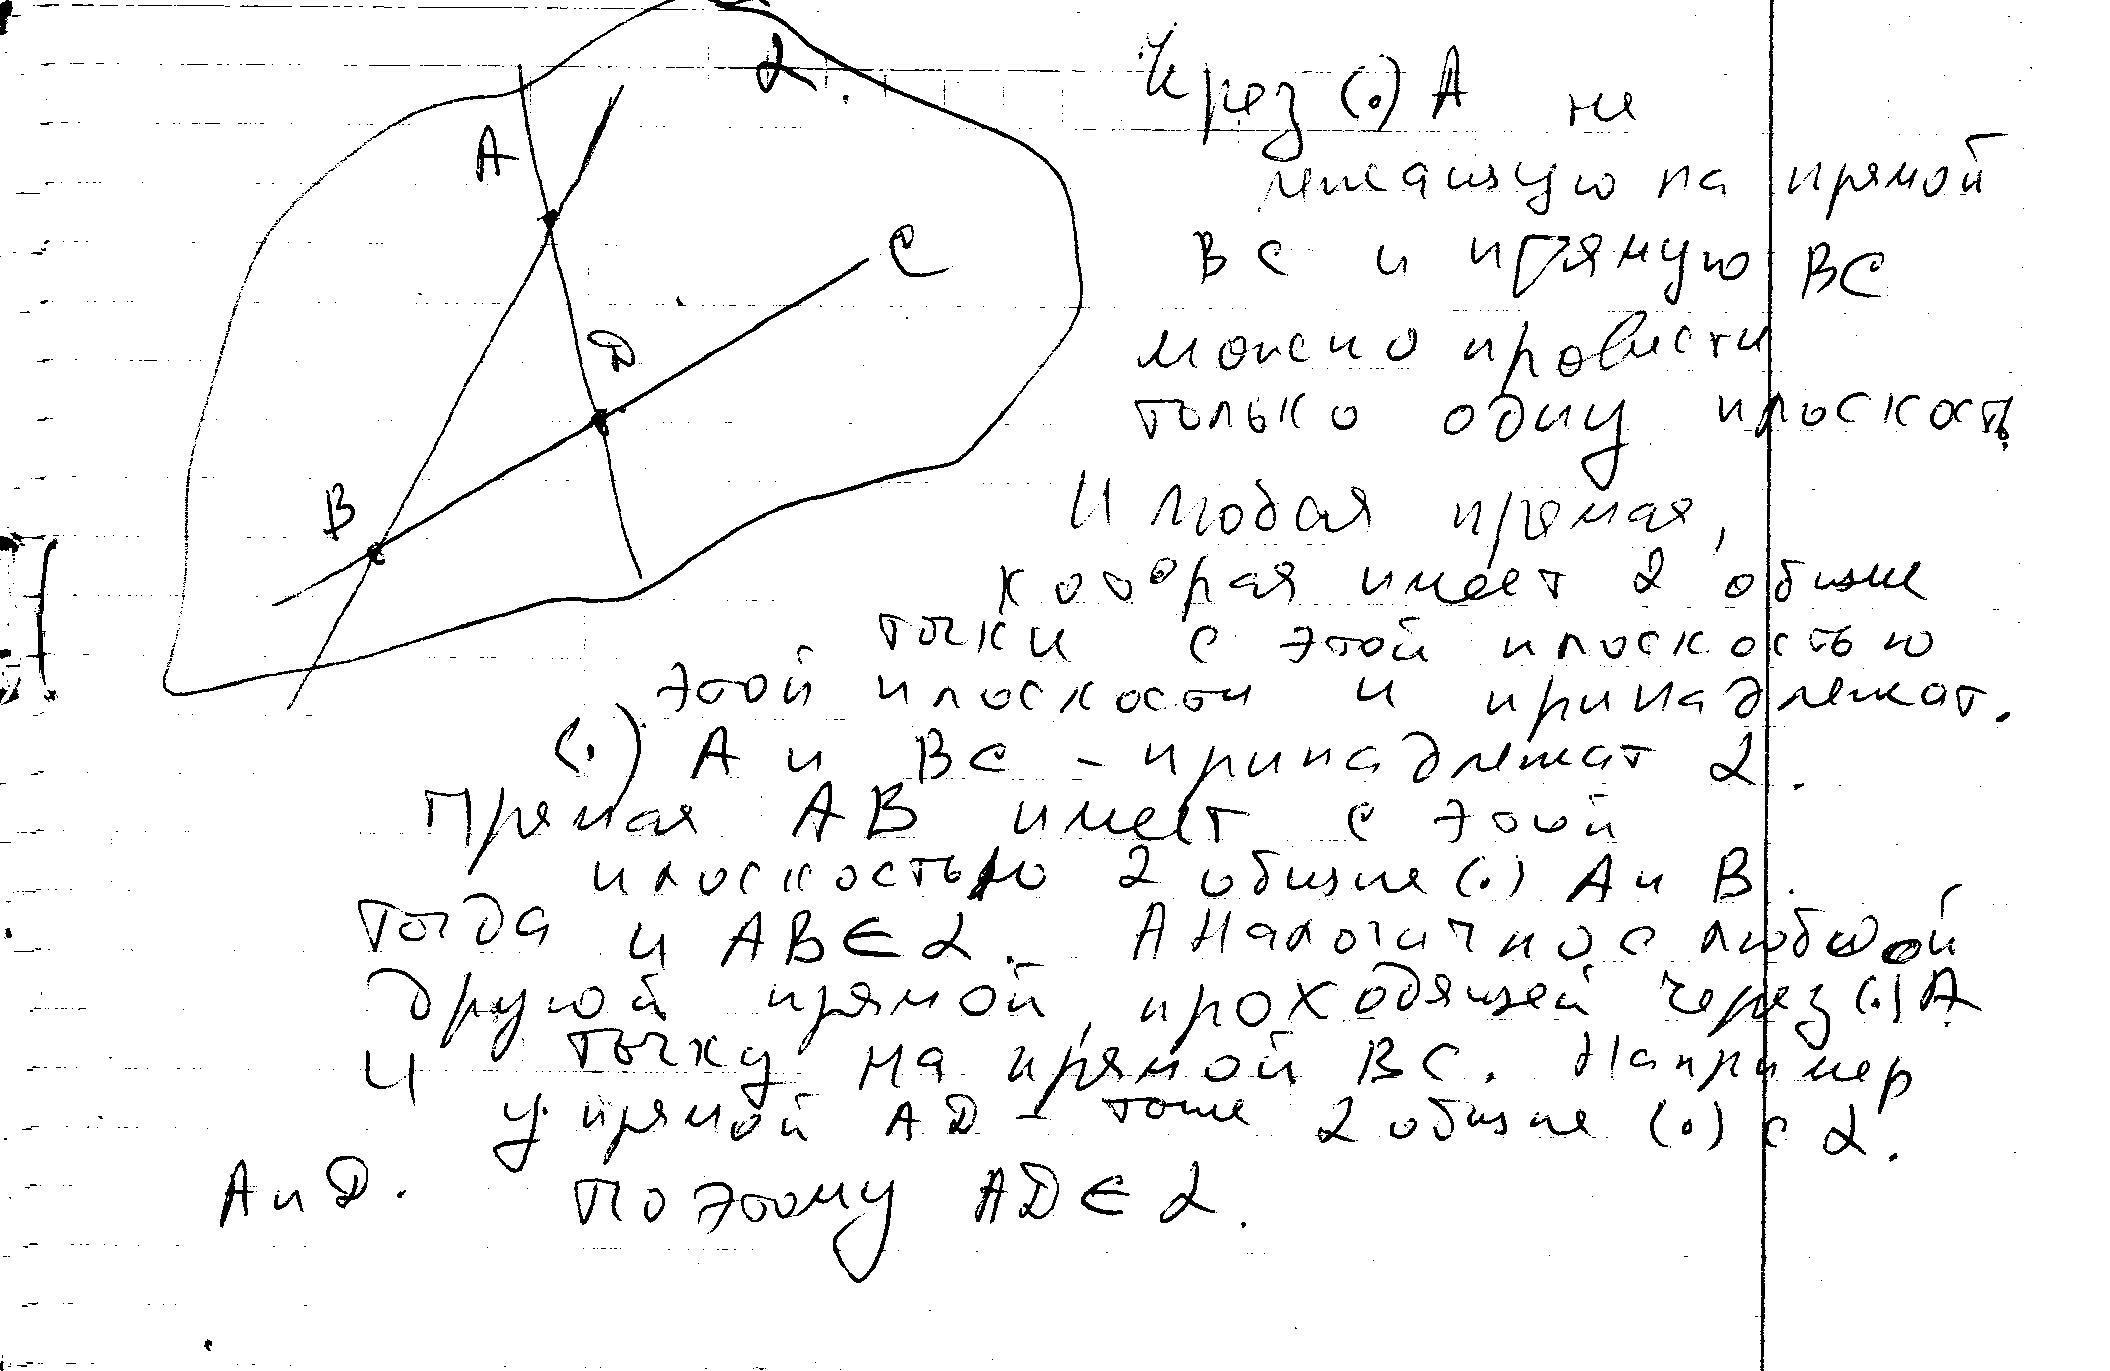 α.
A
C
D
B
Через (.) А не
лежащую на прямой
ВС и прямую ВС
можно провести
только одну плоскость.
И любая прямая,
которая имеет 2 общие
точки с этой плоскостью
этой плоскости и принадлежат.
(.) А и ВС - принадлежат α.
Прямая АВ имеет с этой
плоскостью 2 общие (.) А и В.
Тогда и АВ ∈ α. Аналогично с любой
другой прямой, проходящей через (.) А
и точку на прямой ВС. Например
у прямой AD - тоже 2 общие (.) с α.
А и D. Поэтому AD ∈ α.